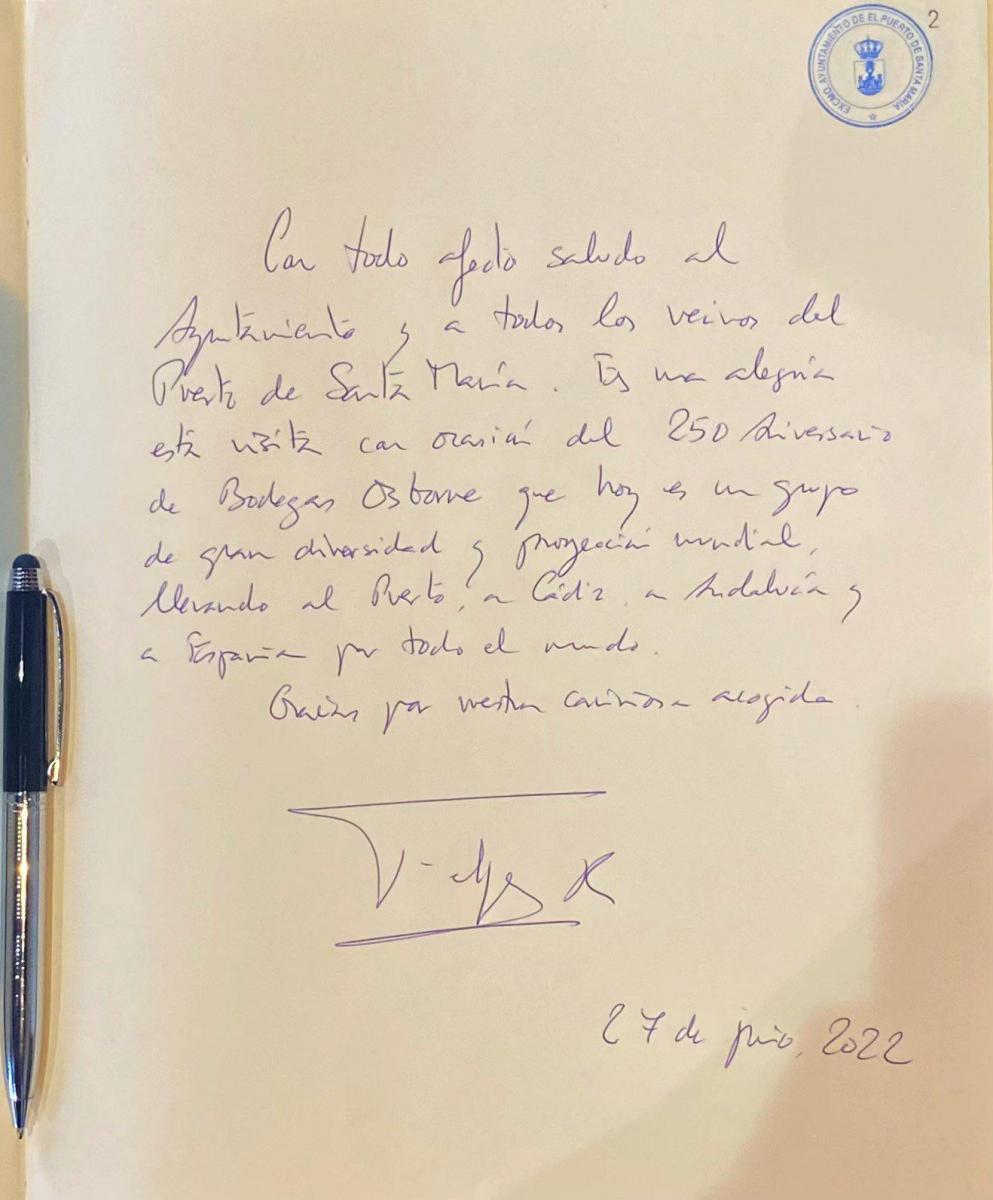 2
EXCMO AYUNTAMIENTO DE EL PUERTO DE SANTA MARIA
Con todo afecto saludo al
Ayuntamiento y a todos los vecinos del
Puerto de Santa María. Es una alegría
esta visita con ocasión del 250 Aniversario
de Bodegas Osborne que hoy es un grupo
de gran diversidad y proyección mundial,
llevando al Puerto, a Cádiz, a Andalucía y
a España por todo el mundo.
Gracias por vuestra cariñosa acogida.
Felipe R
27 de junio, 2022